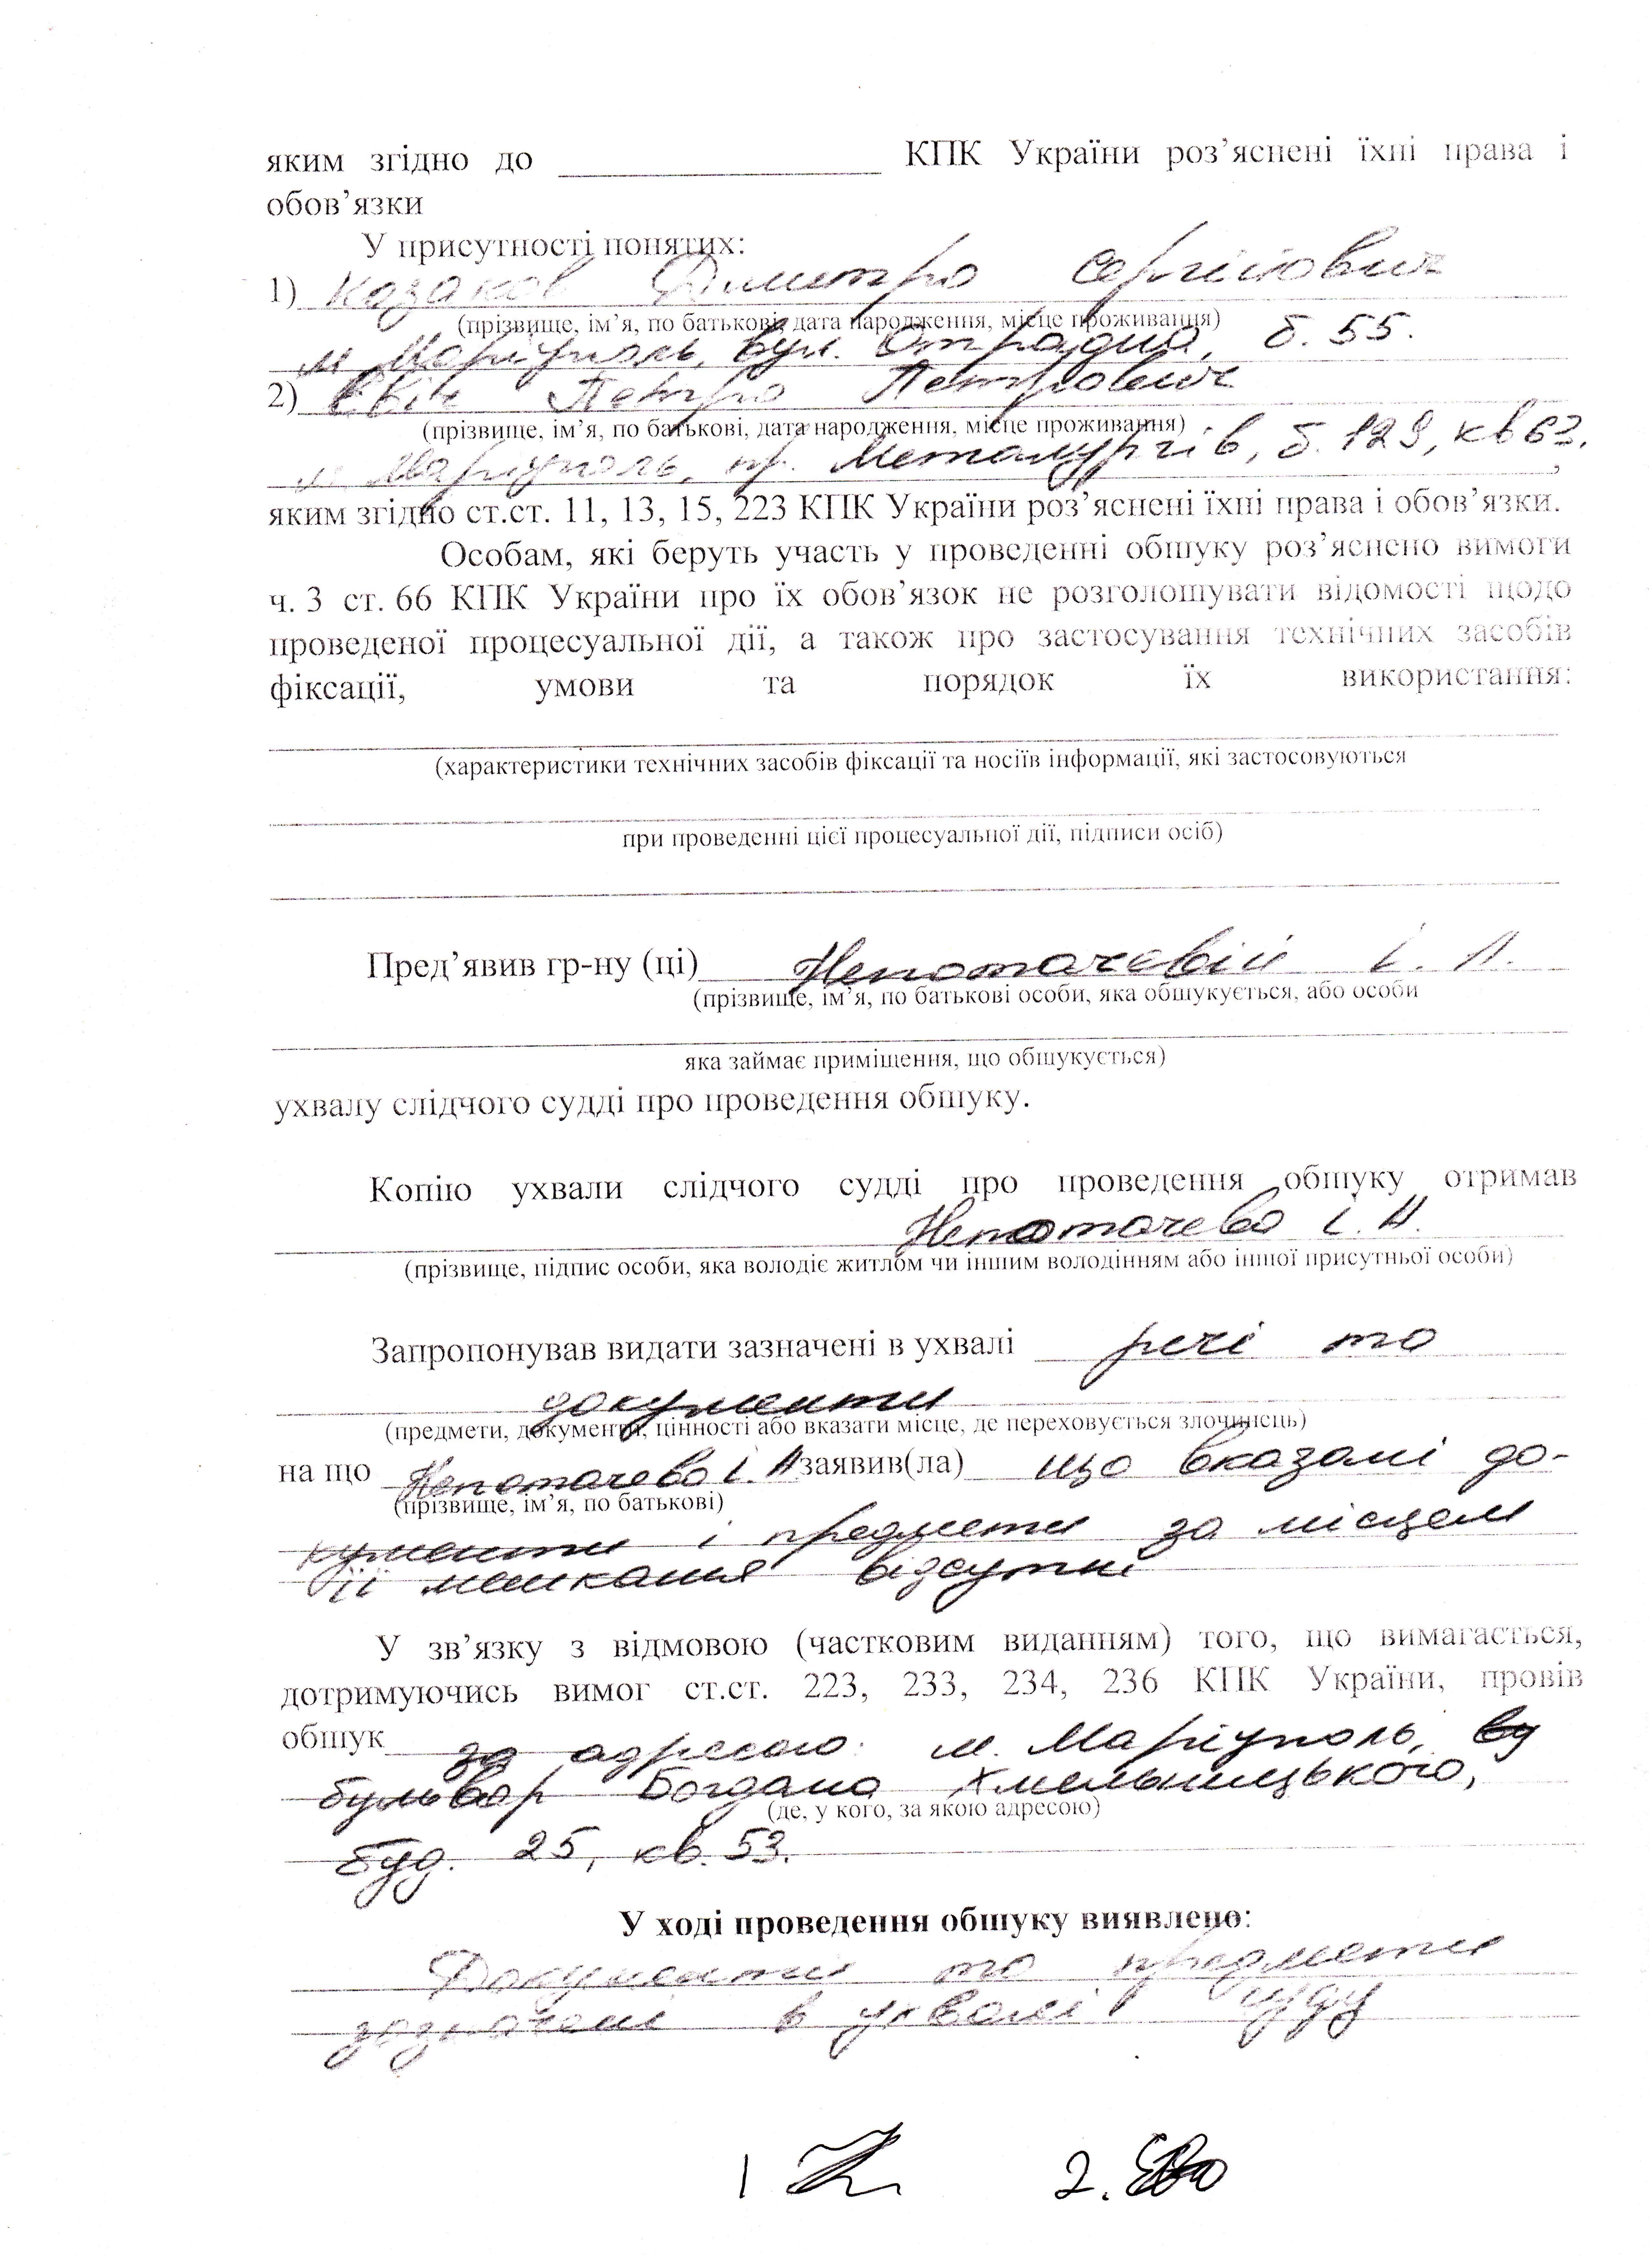 яким згідно до ________________ КПК України роз’яснені їхні права і
обов’язки
У присутності понятих:
1) Казаков Дмитро Сергійович
(прізвище, ім’я, по батькові, дата народження, місце проживання)
м Маріуполь, вул. Отрадна, б. 55.
2) Євіч Петро Петрович
(прізвище, ім’я, по батькові, дата народження, місце проживання)
м. Маріуполь, пр. Металургів, б. 129, кв 63.,
яким згідно ст.ст. 11, 13, 15, 223 КПК України роз’яснені їхні права і обов’язки.
Особам, які беруть участь у проведенні обшуку роз’яснено вимоги
ч. 3 ст. 66 КПК України про їх обов’язок не розголошувати відомості щодо
проведеної процесуальної дії, а також про застосування технічних засобів
фіксації, умови та порядок їх використання:
(характеристики технічних засобів фіксації та носіїв інформації, які застосовуються
при проведенні цієї процесуальної дії, підписи осіб)
Пред’явив гр-ну (ці) Непотачевій І. А.
(прізвище, ім’я, по батькові особи, яка обшукується, або особи
яка займає приміщення, що обшукується)
ухвалу слідчого судді про проведення обшуку.
Копію ухвали слідчого судді про проведення обшуку отримав
Непотачева І. А.
(прізвище, підпис особи, яка володіє житлом чи іншим володінням або іншої присутньої особи)
Запропонував видати зазначені в ухвалі речі та
документи
(предмети, документи, цінності або вказати місце, де переховується злочинець)
на що Непотачева І. А заявив(ла) що вказані до-
(прізвище, ім’я, по батькові)
кументи і предмети за місцем
її мешкання відсутні
У зв’язку з відмовою (частковим виданням) того, що вимагається,
дотримуючись вимог ст.ст. 223, 233, 234, 236 КПК України, провів
обшук за адресою: м. Маріуполь,
бульвар Богдана Хмельницького,
(де, у кого, за якою адресою)
буд. 25, кв. 53.
У ході проведення обшуку виявлено:
Документи та предмети
зазначені в ухвалі
1
2.